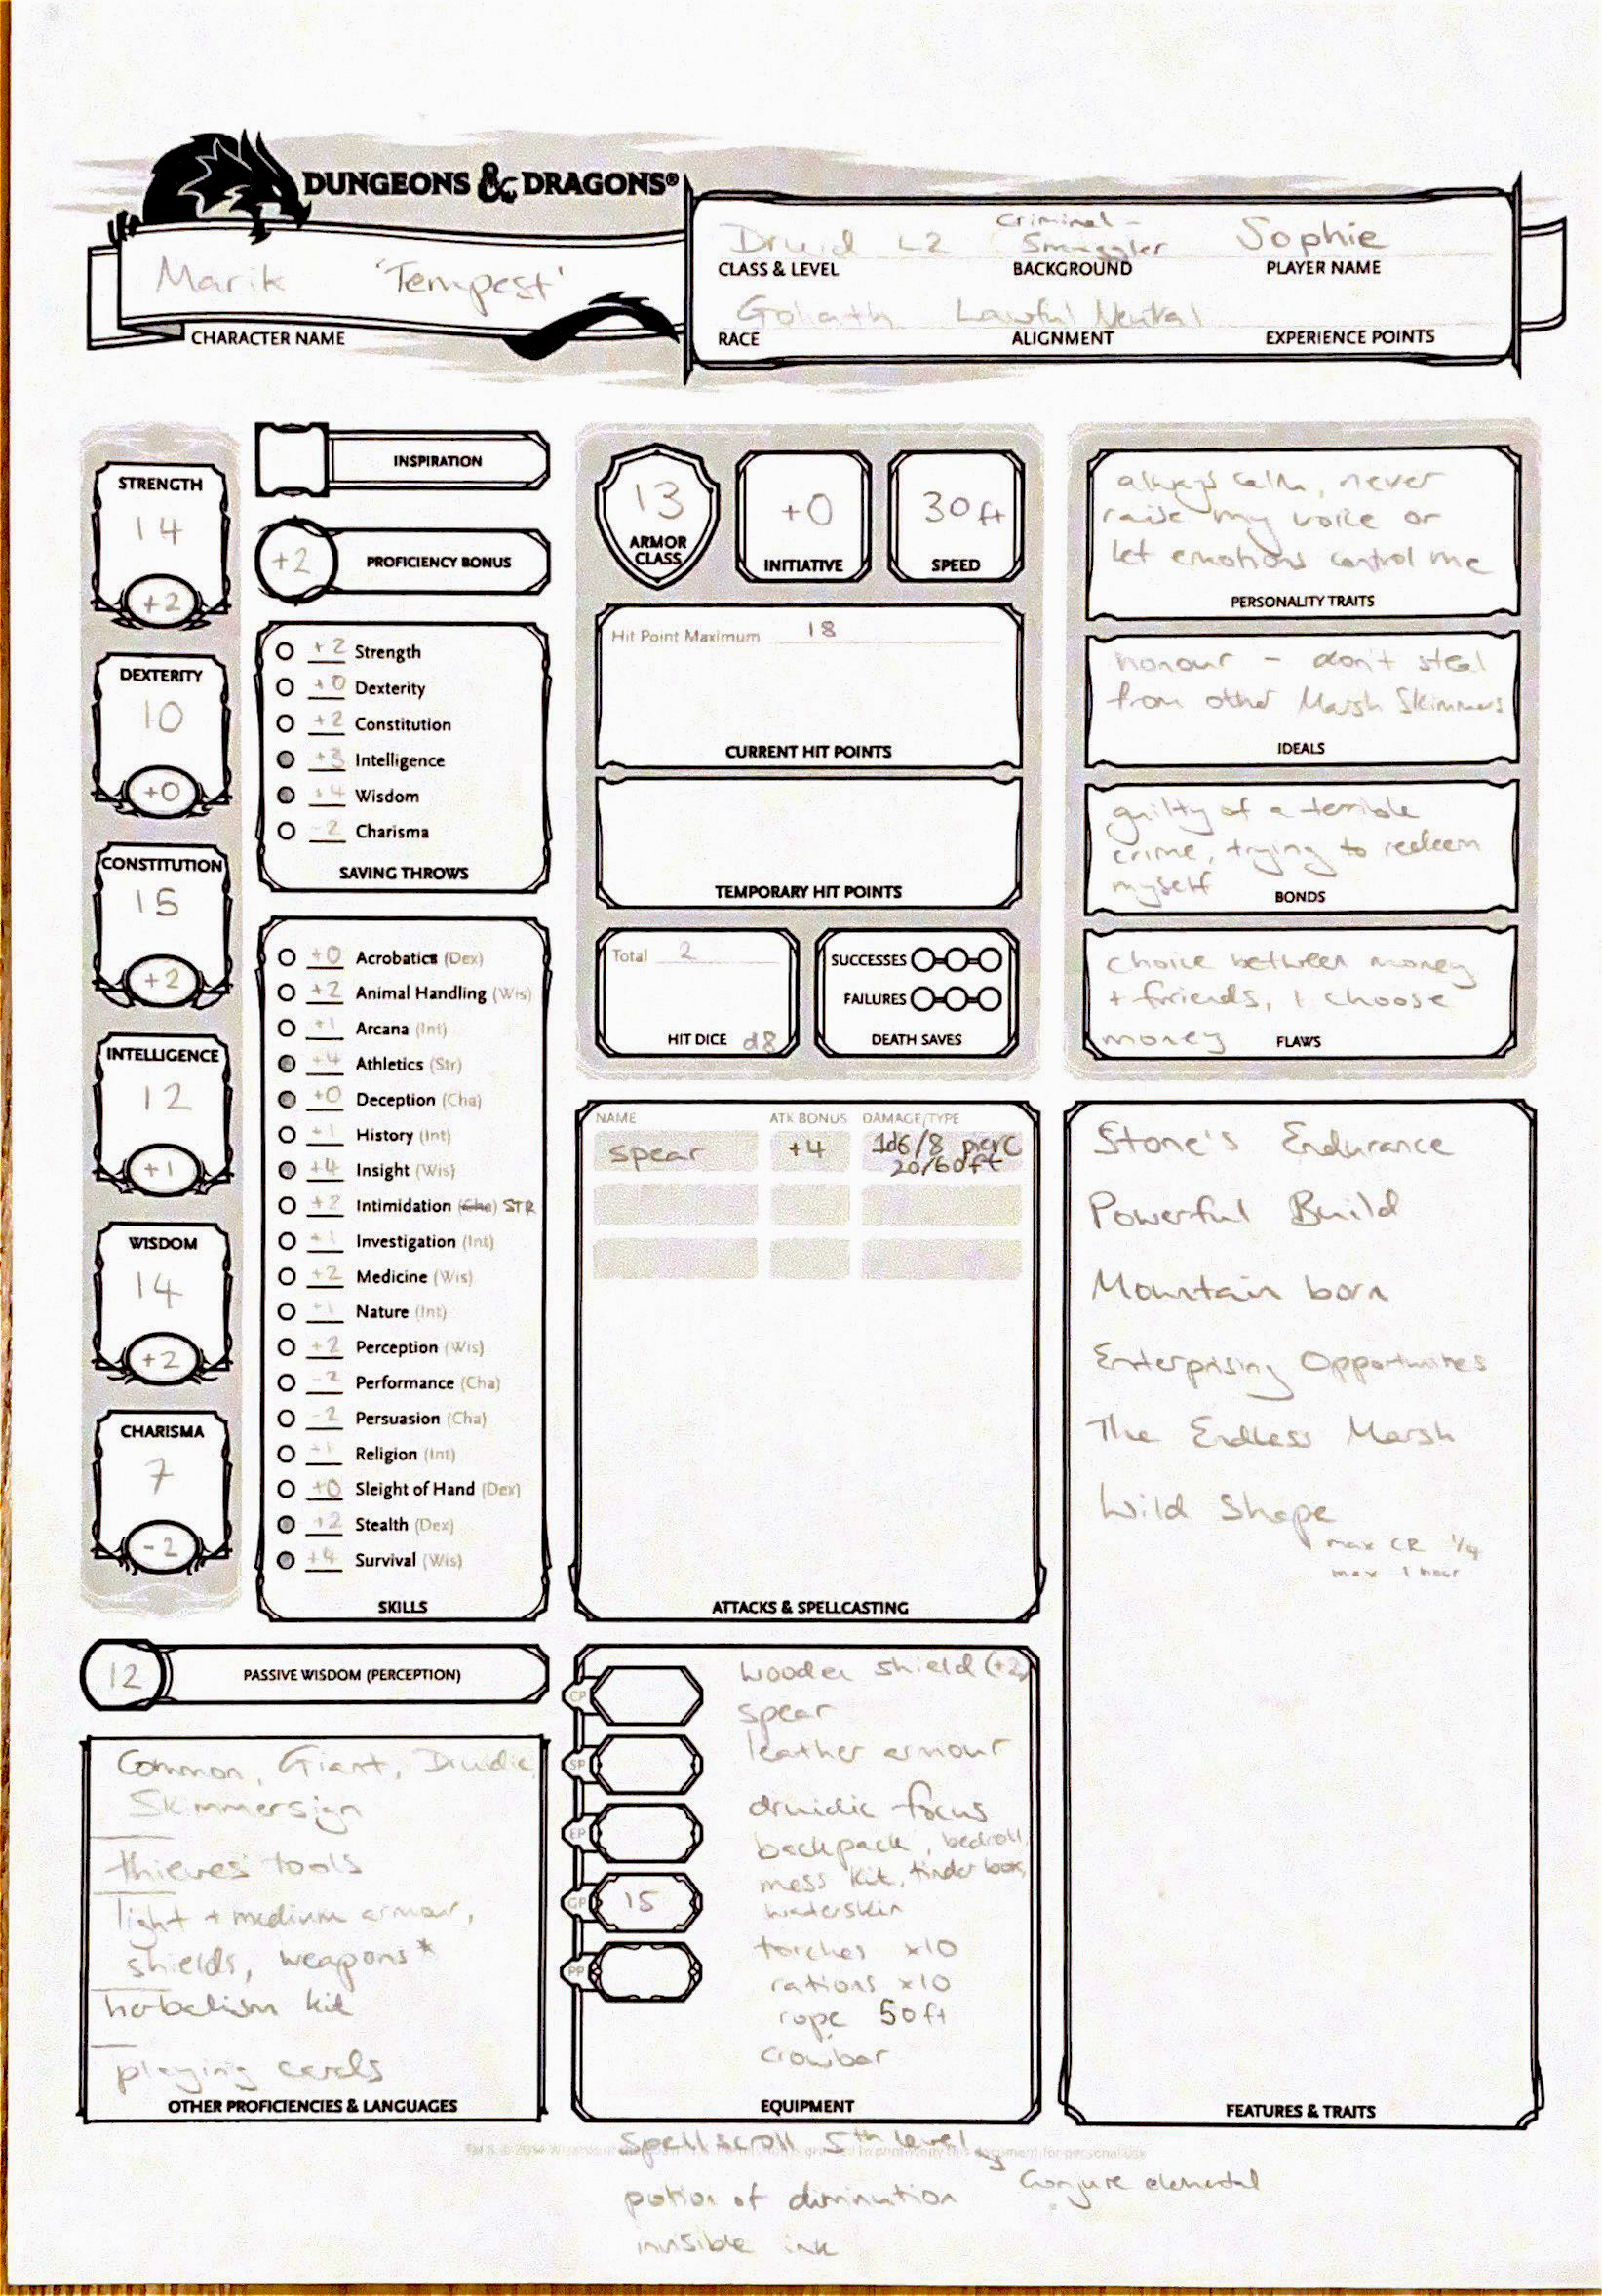 DUNGEONS & DRAGONS®
Marik 'Tempest'
CHARACTER NAME
Druid L2
Criminal -
Smuggler
Sophie
CLASS & LEVEL
BACKGROUND
PLAYER NAME
Goliath
Lawful Neutral
RACE
ALIGNMENT
EXPERIENCE POINTS
STRENGTH
14
+2
DEXTERITY
10
+0
CONSTITUTION
15
+2
INTELLIGENCE
12
+1
WISDOM
14
+2
CHARISMA
7
-2
INSPIRATION
+2 PROFICIENCY BONUS
+2 Strength
+0 Dexterity
+2 Constitution
+3 Intelligence
+4 Wisdom
-2 Charisma
SAVING THROWS
+0 Acrobatics (Dex)
+2 Animal Handling (Wis)
+1 Arcana (Int)
+4 Athletics (Str)
+0 Deception (Cha)
+1 History (Int)
+4 Insight (Wis)
+2 Intimidation (Cha) STR
+1 Investigation (Int)
+2 Medicine (Wis)
+1 Nature (Int)
+2 Perception (Wis)
-2 Performance (Cha)
-2 Persuasion (Cha)
+1 Religion (Int)
+0 Sleight of Hand (Dex)
+2 Stealth (Dex)
+4 Survival (Wis)
SKILLS
12 PASSIVE WISDOM (PERCEPTION)
Common, Giant, Druidic,
Skimmersign
thieves' tools
light + medium armour,
shields, weapons*
herbalism kit
playing cards
OTHER PROFICIENCIES & LANGUAGES
13
ARMOR
CLASS
+0
INITIATIVE
30ft
SPEED
Hit Point Maximum 18
CURRENT HIT POINTS
TEMPORARY HIT POINTS
Total 2
HIT DICE d8
SUCCESSES
FAILURES
DEATH SAVES
NAME ATK BONUS DAMAGE/TYPE
spear +4 1d6/8 pierc
20/60ft
ATTACKS & SPELLCASTING
CP
SP
EP
GP 15
PP
wooden shield (+2)
spear
leather armour
druidic focus
backpack, bedroll,
mess kit, tinder box,
waterskin
torches x10
rations x10
rope 50ft
crowbar
EQUIPMENT
spell scroll 5th level
Conjure elemental
potion of diminution
invisible ink
always calm, never
raise my voice or
let emotions control me
PERSONALITY TRAITS
honour - don't steal
from other Marsh Skimmers
IDEALS
guilty of a terrible
crime, trying to redeem
myself
BONDS
choice between money
+ friends, I choose
money
FLAWS
Stone's Endurance
Powerful Build
Mountain born
Enterprising Opportunites
The Endless Marsh
Wild Shape
max CR 1/4
max 1 hour
FEATURES & TRAITS